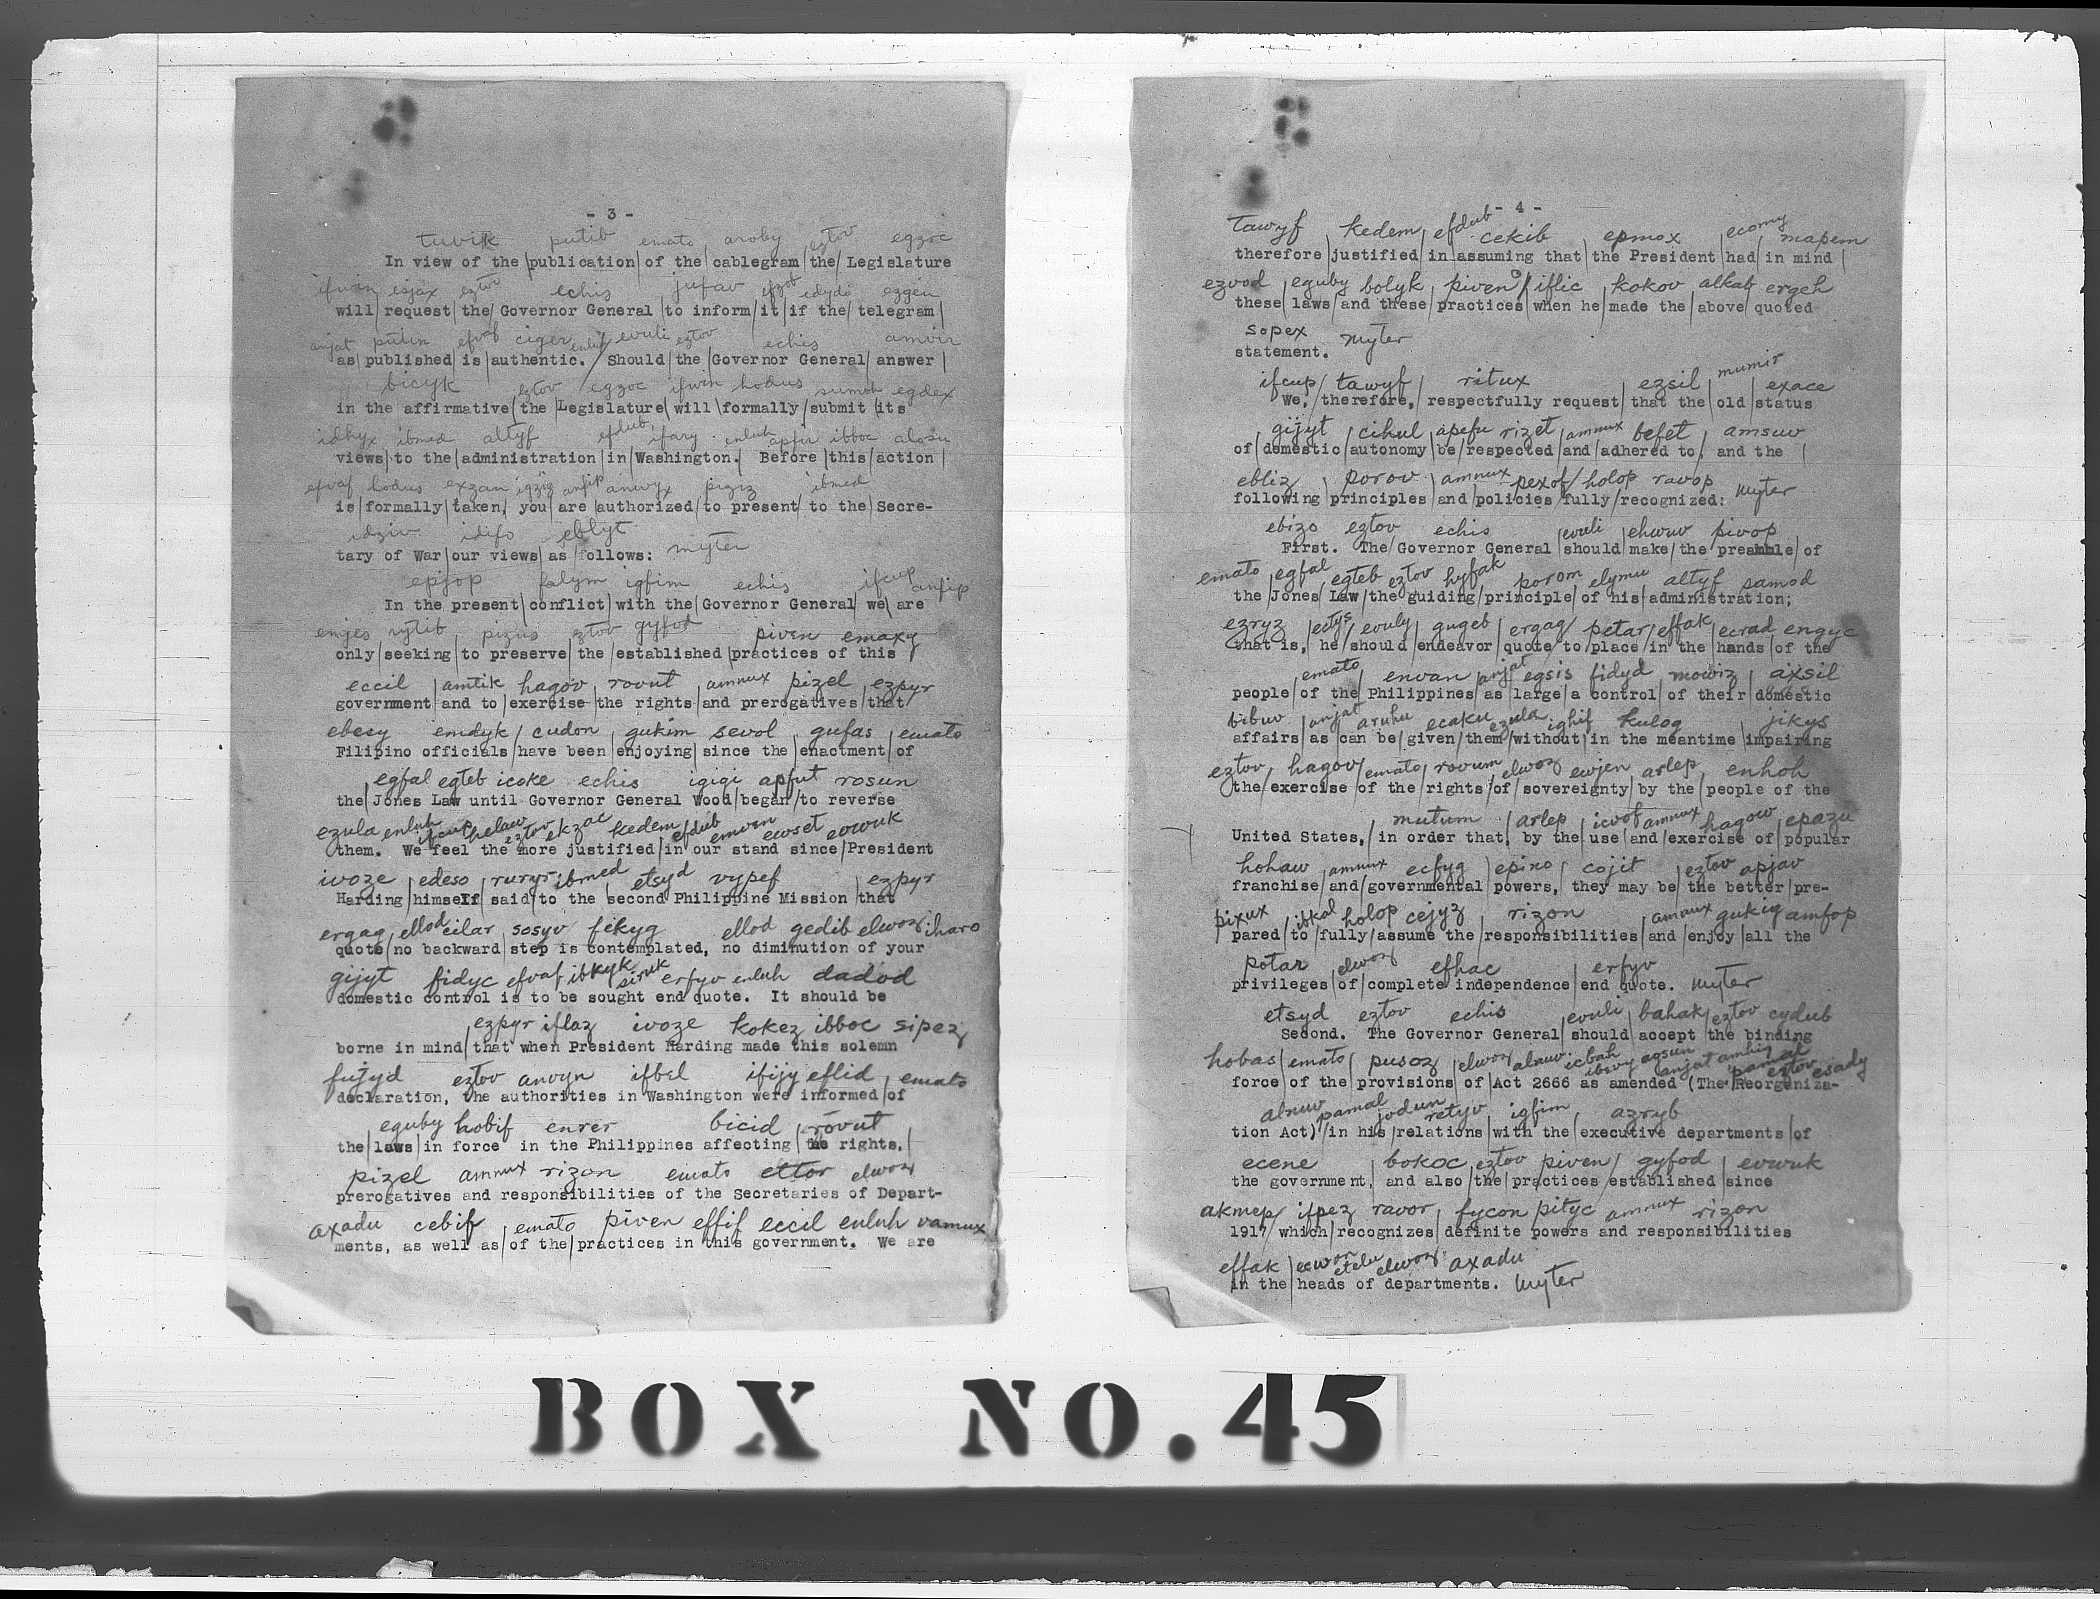 - 3 -
tuvik putib emato aroby eztov egzoc
In view of the publication of the cablegram the Legislature
ifwin eztov echis jufav idydo ezgen
will request the Governor General to inform it if the telegram
anjat putin efvaf ciger enluh evuli eztov echis amvir
as published is authentic. Should the Governor General answer
bicyk eztov egzoc ifwin hodus sumoh egdex
in the affirmative the Legislature will formally submit its
idhyx ibmed altyf efdub ifary enluh apfir ibboc alosu
views to the administration in Washington. Before this action
efvaf hodus exzan igziz anfip anwyx pigiz ibmed
is formally taken, you are authorized to present to the Secre-
idziv idifo eblyt myter
tary of War our views as follows:
epjop falym igfim echis ifcup anfip
In the present conflict with the Governor General we are
enjes rytib pizus eztov gyfod piven emaxy
only seeking to preserve the established practices of this
eccil amtik hagov rovut amnux pizel ezpyr
government and to exercise the rights and prerogatives that
ebesy emdyk cudon gukim sevol gufas emato
Filipino officials have been enjoying since the enactment of
egfal egteb icoke echis igigi apfut rosun
the Jones Law until Governor General Wood began to reverse
ezula enluh ifcup helaw eztov ekzac kedem efdub emven ewset evwuk
them. We feel the more justified in our stand since President
ivoze edeso ruryr ibmed etsyd vypef ezpyr
Harding himself said to the second Philippine Mission that
ergag ellod cilar sosyv fekyg ellod gedib elwoz iharo
quote no backward step is contemplated, no diminution of your
gijyt fidyc efvaf ibkyk siruk erfyv enluh dadod
domestic control is to be sought end quote. It should be
ezpyr iflaz ivoze kokez ibboc sipez
borne in mind that when President Harding made this solemn
fujyd eztov anvyn ifbel ifijy eflid emato
declaration, the authorities in Washington were informed of
eguby hobif enrer bicid rovut
the laws in force in the Philippines affecting the rights,
pizel amnux rizon emato ettor elwoz
prerogatives and responsibilities of the Secretaries of Depart-
axadu cebif emato piven effif eccil enluh vamux
ments, as well as of the practices in this government. We are
- 4 -
tawyf kedem efdub cekib epmox ecomy mapem
therefore justified in assuming that the President had in mind
ezvod eguby bolyk piven iflic kokov alkab ergeh
these laws and these practices when he made the above quoted
sopex myter
statement.
ifcup tawyf ritux ezsil mumir exace
We, therefore, respectfully request that the old status
gijyt cihul apefu rizet amnux befet amsuv
of domestic autonomy be respected and adhered to, and the
ebliz porov amnux pexof holop ravop myter
following principles and policies fully recognized:
ebizo eztov echis evuli ehwuv pivop
First. The Governor General should make the preamble of
emato egfal egteb eztov hyfak porom elymu altyf samod
the Jones Law the guiding principle of his administration;
ezryz ectys evuly gugeb ergag petar effak ecrad engyc
that is, he should endeavor quote to place in the hands of the
emato envan anjat egsis fidyd mowiz axsil
people of the Philippines as large a control of their domestic
bibuv anjat aruhu ecaku ezula ighif kulog jikys
affairs as can be given them without in the meantime impairing
eztov hagov emato rovum elwoz ewjen arlep enhoh
the exercise of the rights of sovereignty by the people of the
mutum arlep icvof amnux hagow epazu
United States, in order that, by the use and exercise of popular
hohaw amnux ecfyg epino cojit eztov apjav
franchise and governmental powers, they may be the better pre-
pixux ibkal holop cejyz rizon amnux gukig amfop
pared to fully assume the responsibilities and enjoy all the
potar elwoz efhac erfyv myter
privileges of complete independence end quote.
etsyd eztov echis evuli bahak eztov cydub
Second. The Governor General should accept the binding
hobas emato pusoz elwoz alauv icbah ibsvy eqsun anjat amhig pamal eztov esady
force of the provisions of Act 2666 as amended (The Reorganiza-
alauv pamal jodun retyv igfim azryb
tion Act) in his relations with the executive departments of
ecene bokoc eztov piven gyfod evwuk
the government, and also the practices established since
akmep ifpez ravor fycon pityc amnux rizon
1917 which recognizes definite powers and responsibilities
effak ecwon etelu elwoz axadu myter
in the heads of departments.
BOX NO.45